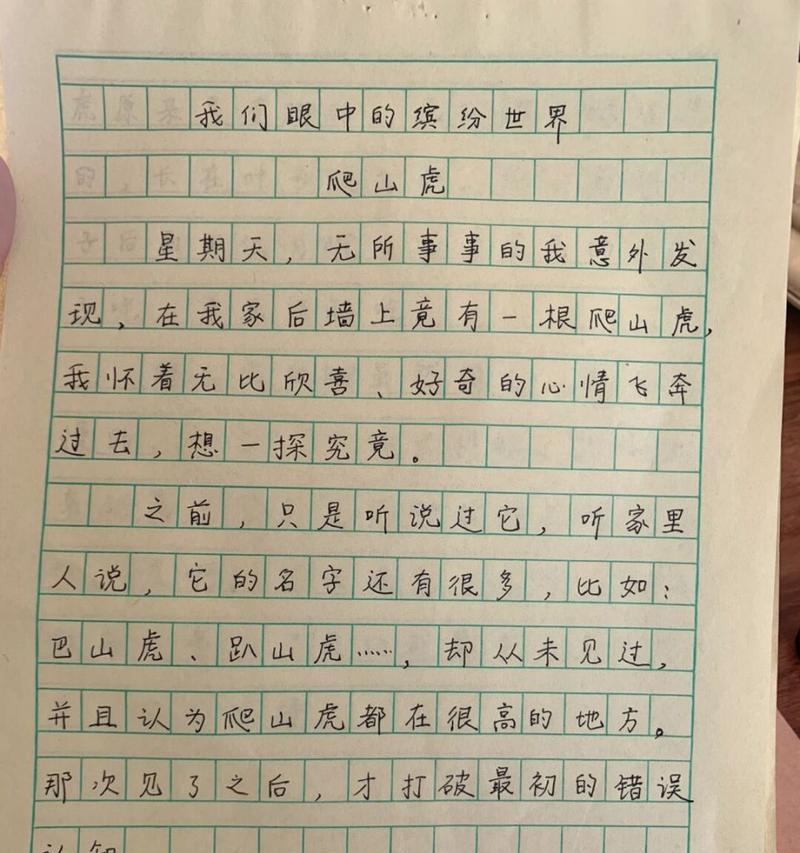 我们眼中的缤纷世界
爬山虎
星期天，无所事事的我意外发
现，在我家后墙上竟有一根爬山虎，
我怀着无比欣喜、好奇的心情飞奔
过去，想一探究竟。
之前，只是听说过它，听家里
人说，它的名字还有很多，比如：
巴山虎、趴山虎……，却从未见过，
并且认为爬山虎都在很高的地方。
那次见了之后，才打破最初的错误
认知